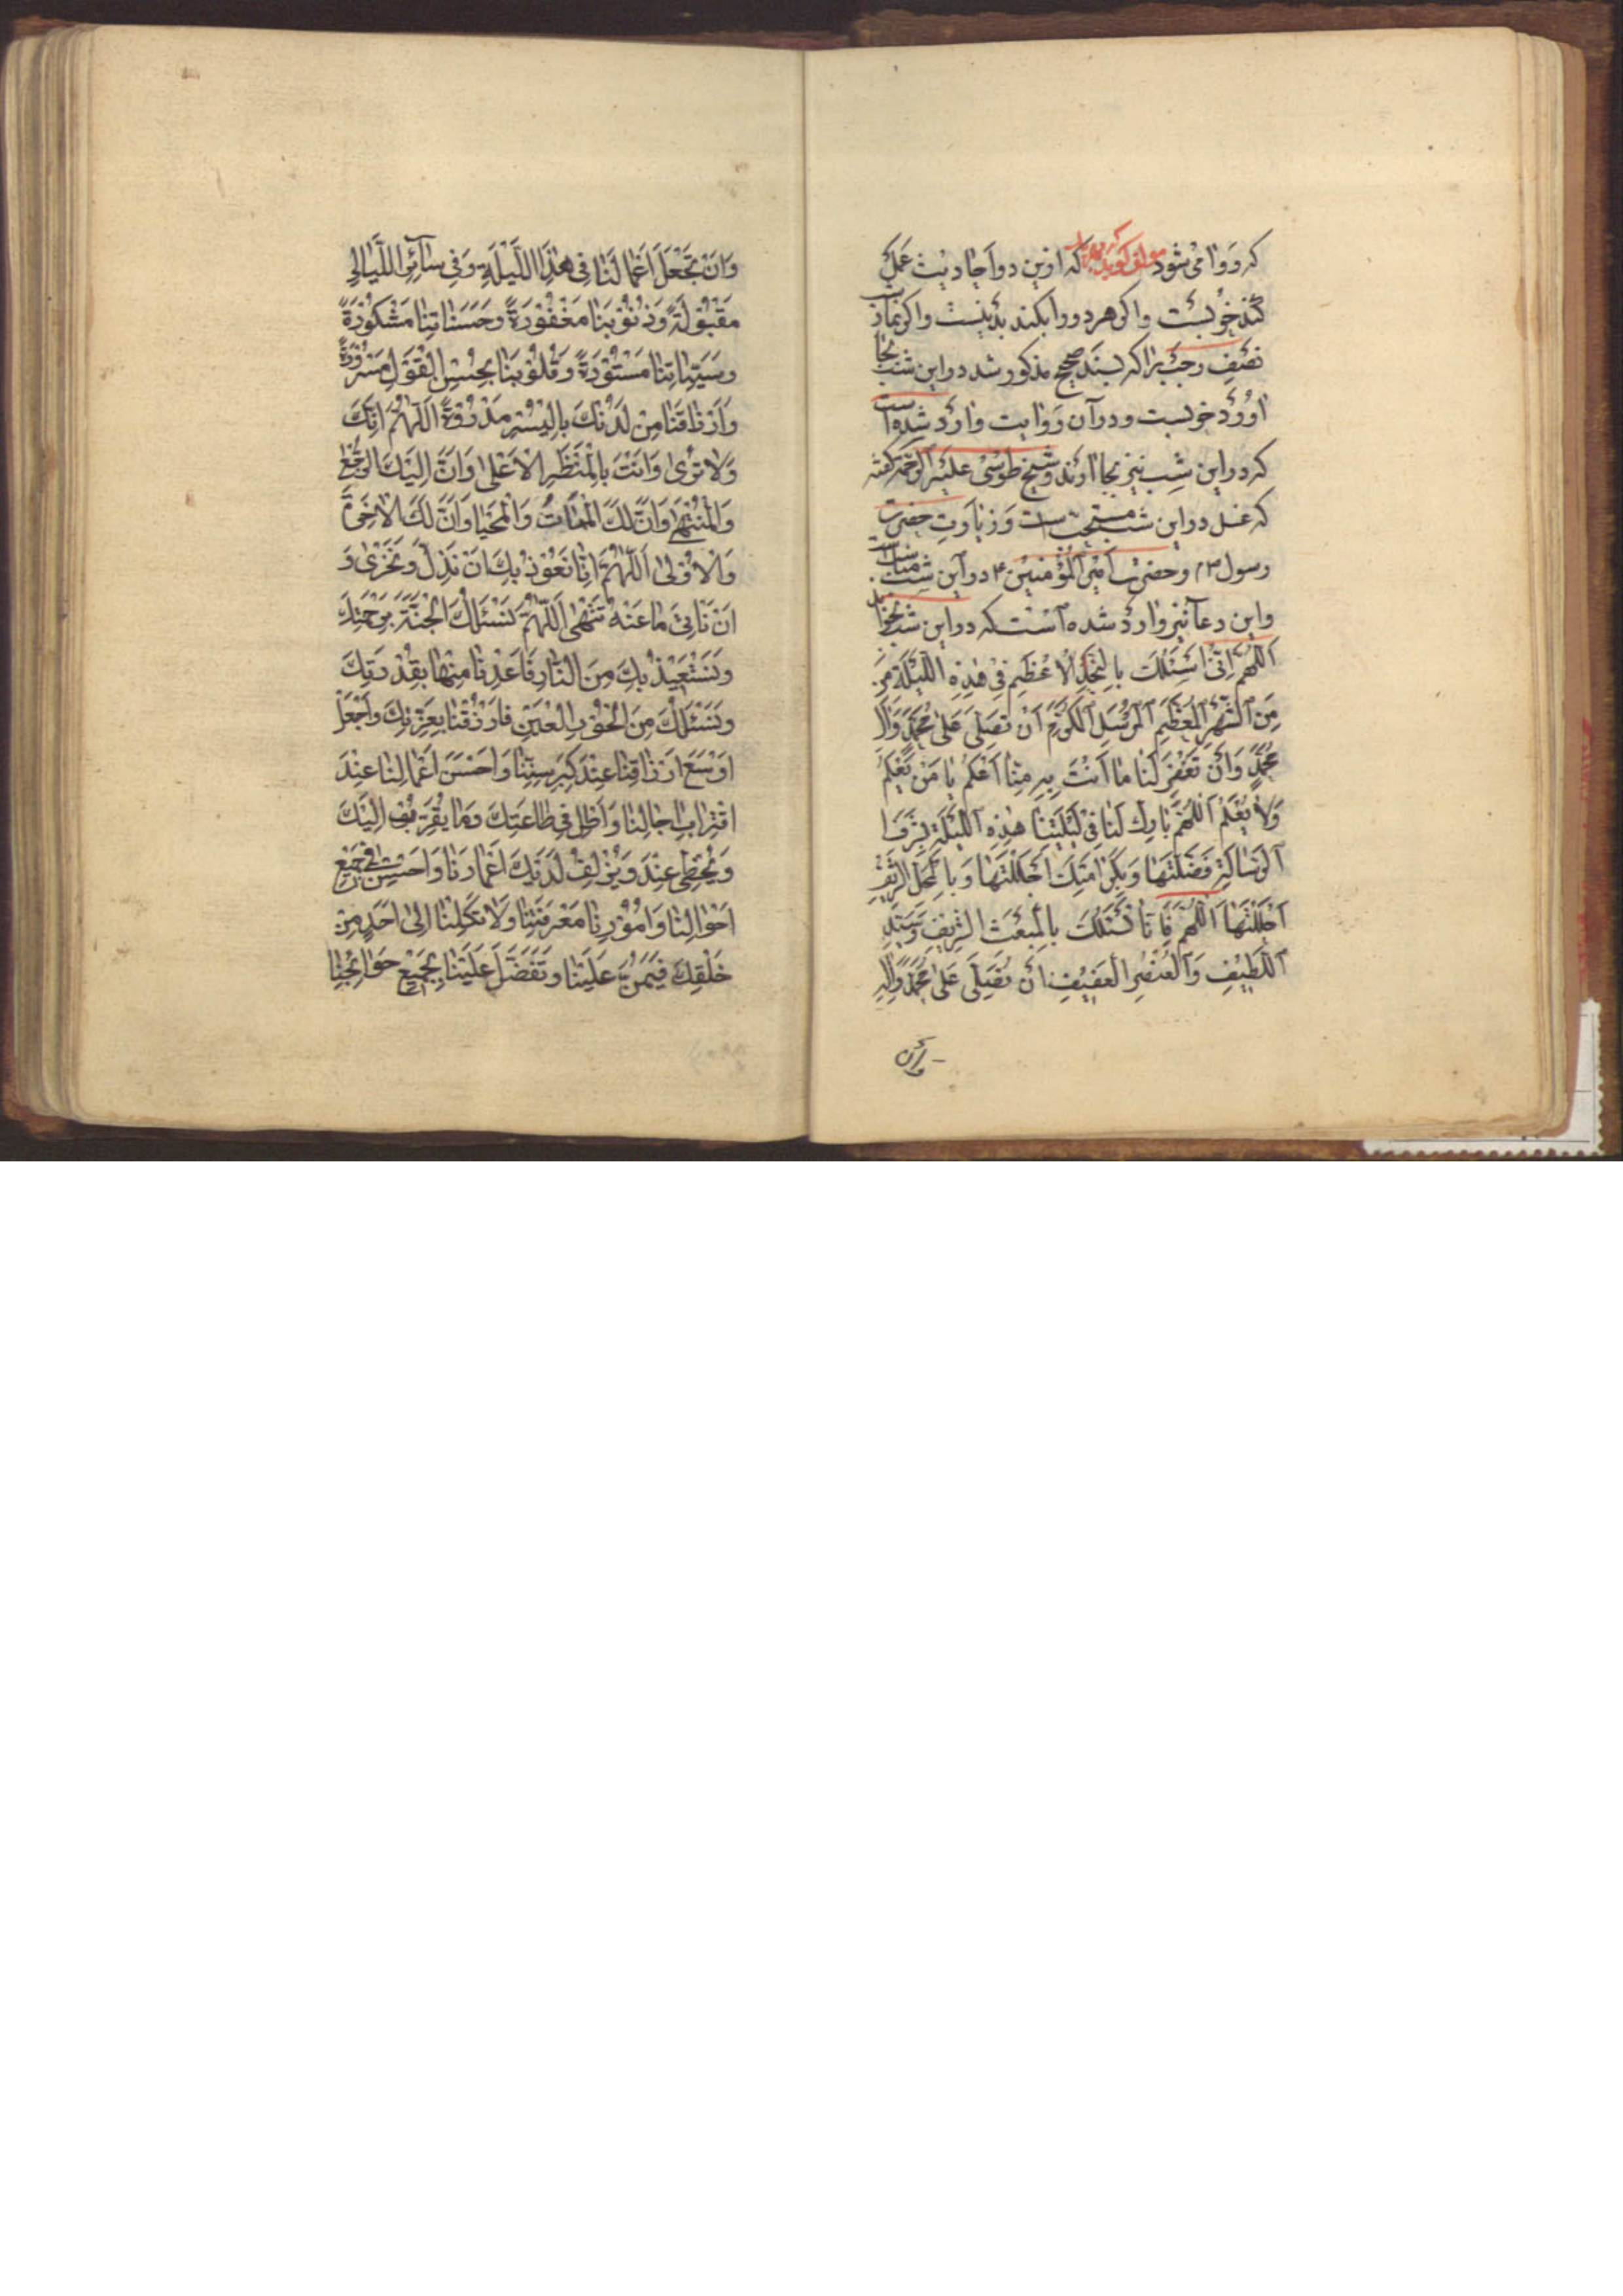 که روا می‌شود مؤلف کوید که ازین دو احادیث عمل
کند خوبست و اکر هر دو را بکند بد نیست و اکر نماز شب
نصف رجب را که بسند صحیح مذکور شد در این شب بجا
اورد خوبست و در آن روایت وارد شده است
که در این شب نیز بجا اورند و شیخ طوسی علیه الرحمه کفته
که غسل در این شب مستحبست و زیارت حضرت
رسول ص و حضرت امیر المؤمنین ع در این شب مناسبست
و این دعا نیز وارد شده است که در این شب بخوانند
اَللّهُمَّ اِنّی اَسْئَلُكَ بِالنَّجْلِ الْاَعْظَمِ فِی هٰذِهِ اللَّیْلَةِ مِنَ
مِنَ الشَّهْرِ الْمُعَظَّمِ الْمُرْسَلِ الْمُکَرَّمِ اَنْ تُصَلِّیَ عَلٰی مُحَمَّدٍ وَآلِ
مُحَمَّدٍ وَاَنْ تَغْفِرَ لَنا ما اَنْتَ بِهِ مِنّا اَعْلَمُ یا مَنْ یَعْلَمُ
وَلا یُعْلَمُ اَللّهُمَّ بارِكْ لَنا فِی لَیْلَتِنا هٰذِهِ اللَّیْلَةِ بِشَرَفِ
الرِّسالَةِ فَضَّلْتَها وَبِکَرامَتِكَ اَجْلَلْتَها وَبِالْمَحَلِّ الشَّرِیفِ
اَحْلَلْتَها اَللّهُمَّ فَاِنّا نَسْئَلُكَ بِالْمَبْعَثِ الشَّرِیفِ وَسَیِّدِ
اللَّطِیفِ وَالْعُنْصُرِ الْعَفِیفِ اَنْ تُصَلِّیَ عَلٰی مُحَمَّدٍ وَآلِهِ
وَاَنْ
وَاَنْ تَجْعَلَ اَعْمالَنا فِی هٰذِهِ اللَّیْلَةِ وَفِی سآئِرِ اللَّیالِی
مَقْبُولَةً وَذُنُوبَنا مَغْفُورَةً وَحَسَناتِنا مَشْکُورَةً
وَسَیِّئاتِنا مَسْتُورَةً وَقُلُوبَنا بِحُسْنِ الْقَوْلِ مَسْرُورَةً
وَاَرْزاقَنا مِنْ لَدُنْكَ بِالْیُسْرِ مَدْرُورَةً اَللّهُمَّ اِنَّكَ
وَلا تُرٰی وَاَنْتَ بِالْمَنْظَرِ الْاَعْلٰی وَاَنَّ اِلَیْكَ الرُّجْعٰی
وَالْمُنْتَهٰی وَاَنَّ لَكَ الْمَماتَ وَالْمَحْیا وَاَنَّ لَكَ الْاٰخِرَةَ
وَالْاُولٰی اَللّهُمَّ اِنّا نَعُوذُ بِكَ اَنْ نَذِلَّ وَنَخْزٰی وَ
اَنْ نَاْتِیَ ما عَنْهُ تَنْهٰی اَللّهُمَّ نَسْئَلُكَ الْجَنَّةَ بِرَحْمَتِكَ
وَنَسْتَعِیذُ بِكَ مِنَ النّارِ فَاَعِذْنا مِنْها بِقُدْرَتِكَ
وَنَسْئَلُكَ مِنَ الْحُورِ الْعِینِ فَارْزُقْنا بِعِزَّتِكَ وَاجْعَلْ
اَوْسَعَ اَرْزاقِنا عِنْدَ کِبَرِ سِنِّنا وَاَحْسَنَ اَعْمالِنا عِنْدَ
اقْتِرابِ اٰجالِنا وَاَطِلْ فِی طاعَتِكَ وَما یُقَرِّبُ اِلَیْكَ
وَیُحْظِی عِنْدَ وَیُزْلِفُ لَدَیْكَ اَعْمارَنا وَاَحْسِنْ فِی جَمِیعِ
اَحْوالِنا وَاُمُورِنا مَعْرِفَتَنا وَلا تَکِلْنا اِلٰی اَحَدٍ مِنْ
خَلْقِكَ فَیَمُنَّ عَلَیْنا وَتَفَضَّلْ عَلَیْنا بِجَمِیعِ حَوآئِجِنا